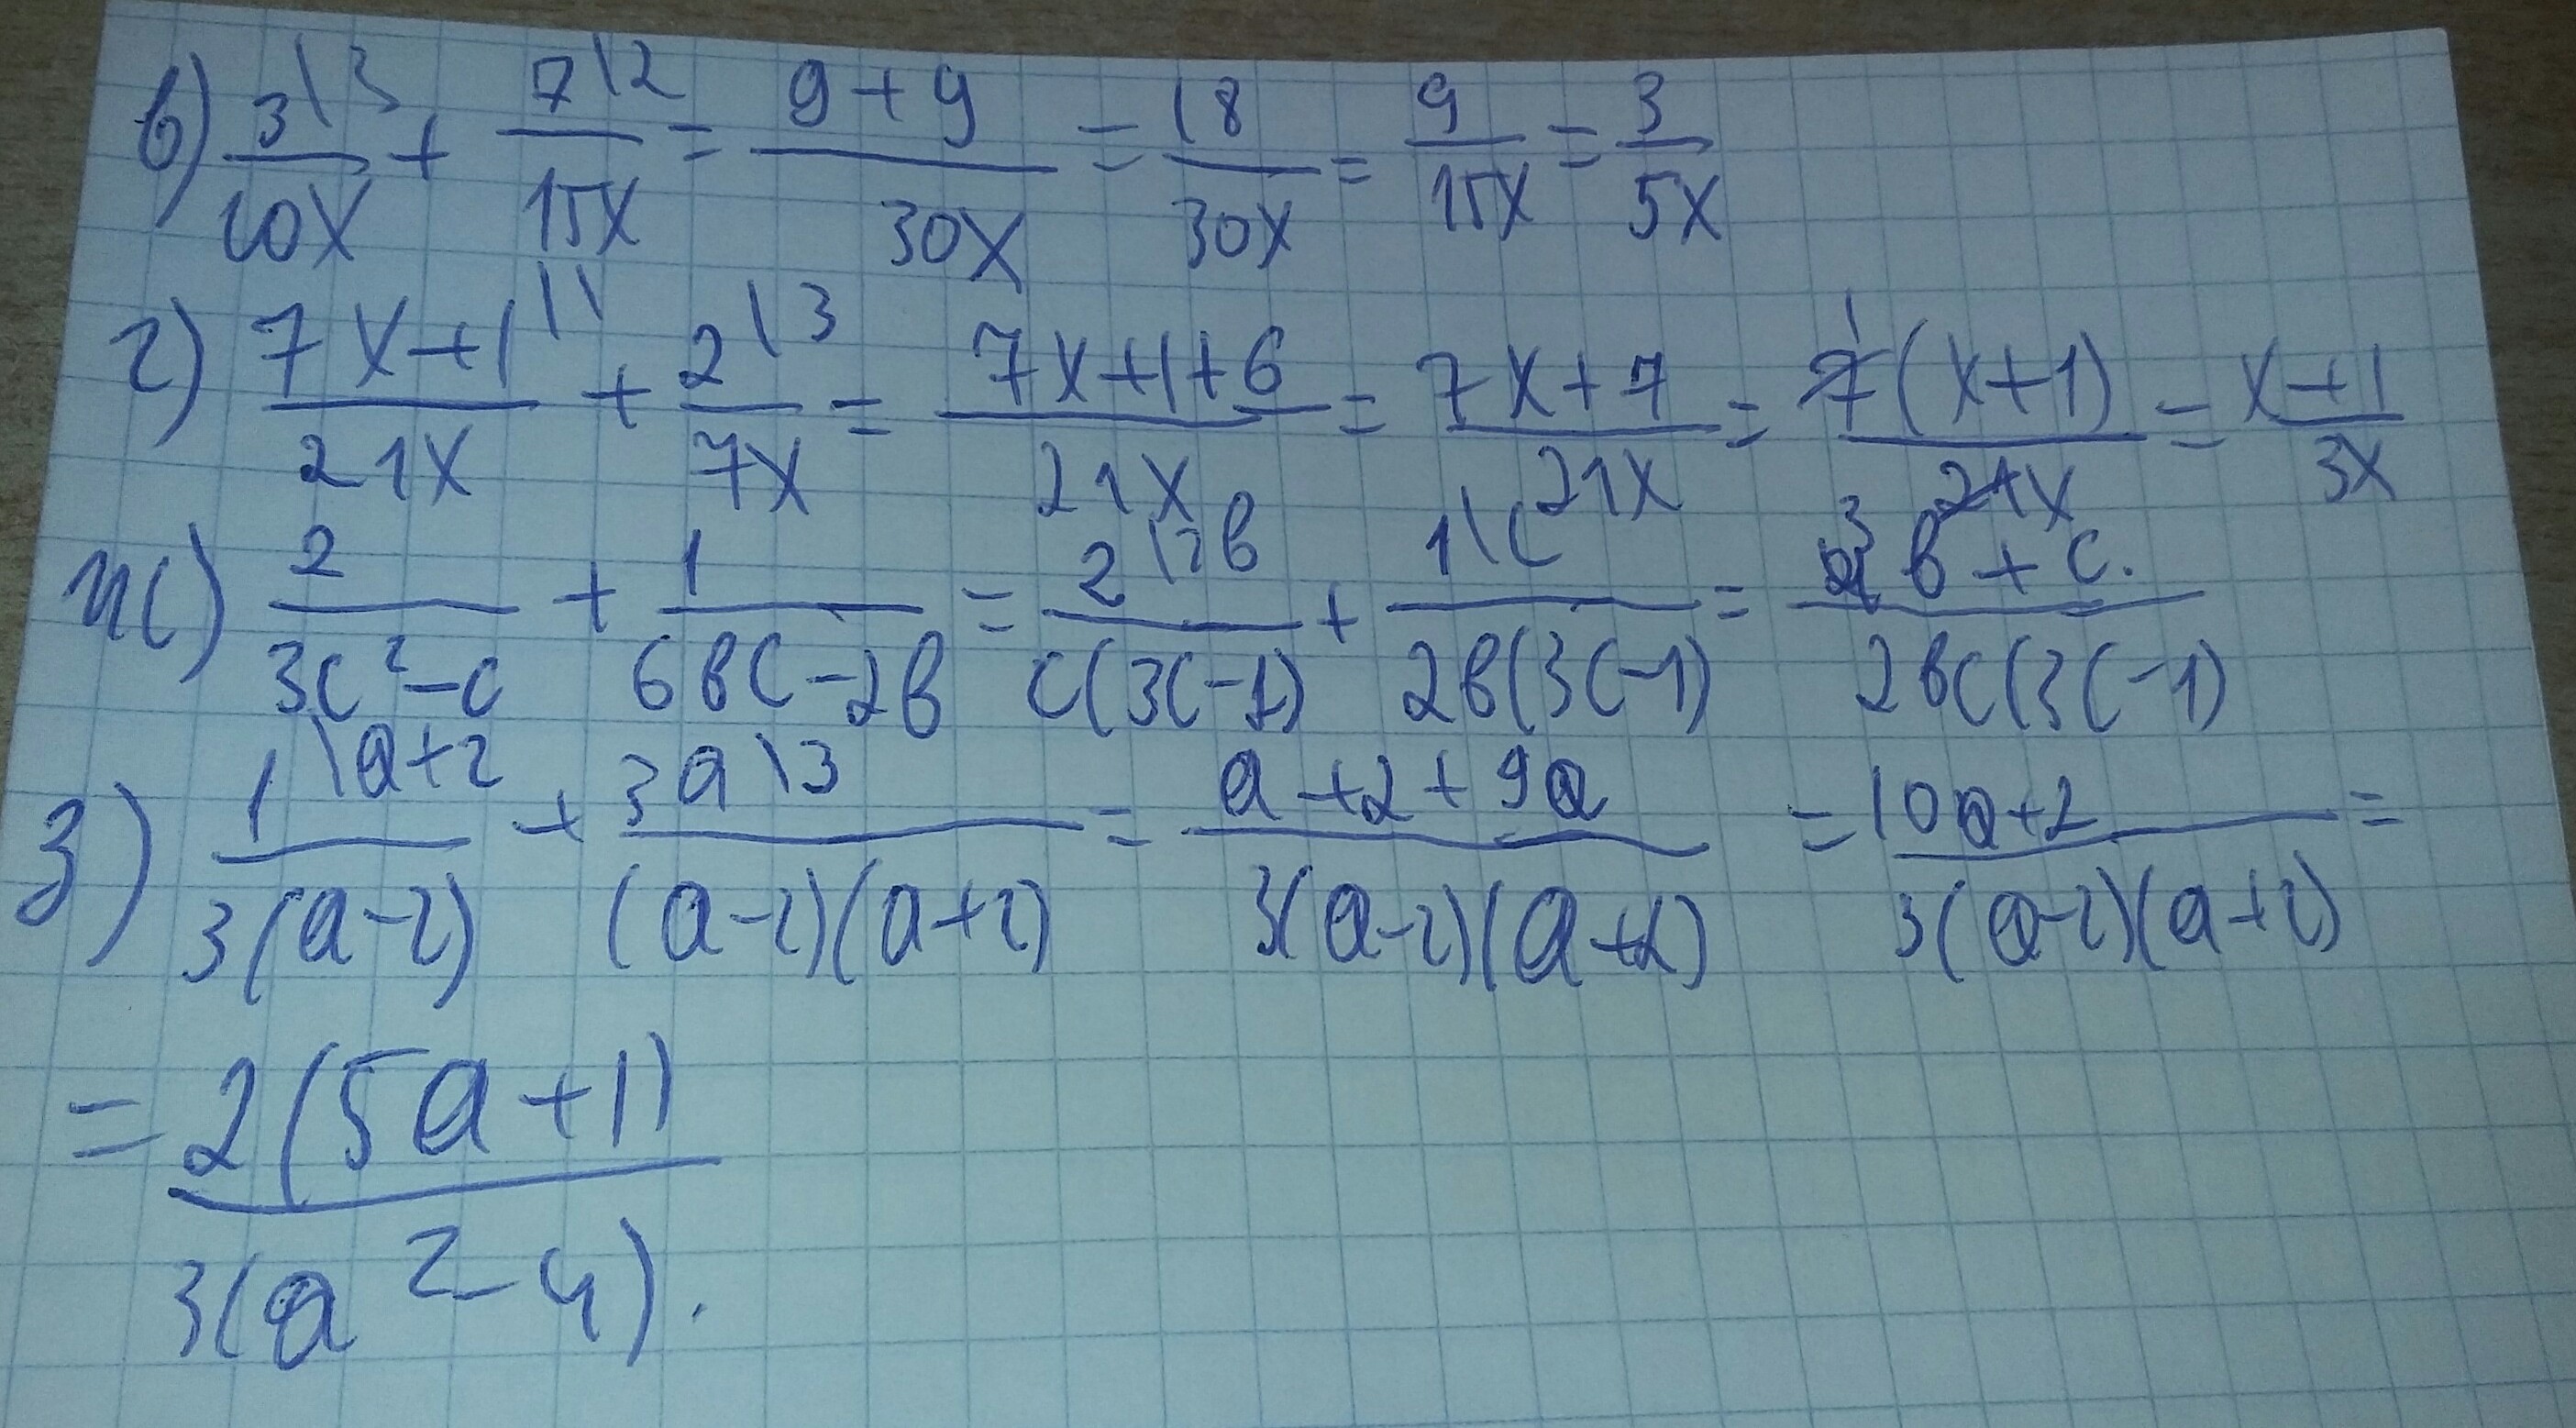 в) 3\3/10x + 7\2/15x = 9+9/30x = 18/30x = 9/15x = 3/5x
г) 7x+1\1/21x + 2\3/7x = 7x+1+6/21x = 7x+7/21x = 7(x+1)/21x = x+1/3x
ж) 2/3c²-c + 1/6вc-2в = 2\2в/c(3c-1) + 1\c/2в(3c-1) = в+c./2вc(3c-1)
з) 1\a+2/3(a-2) + 3a\3/(a-2)(a+2) = a+2+9a/3(a-2)(a+2) = 10a+2/3(a-2)(a+2) =
= 2(5a+1)/3(a²-4).